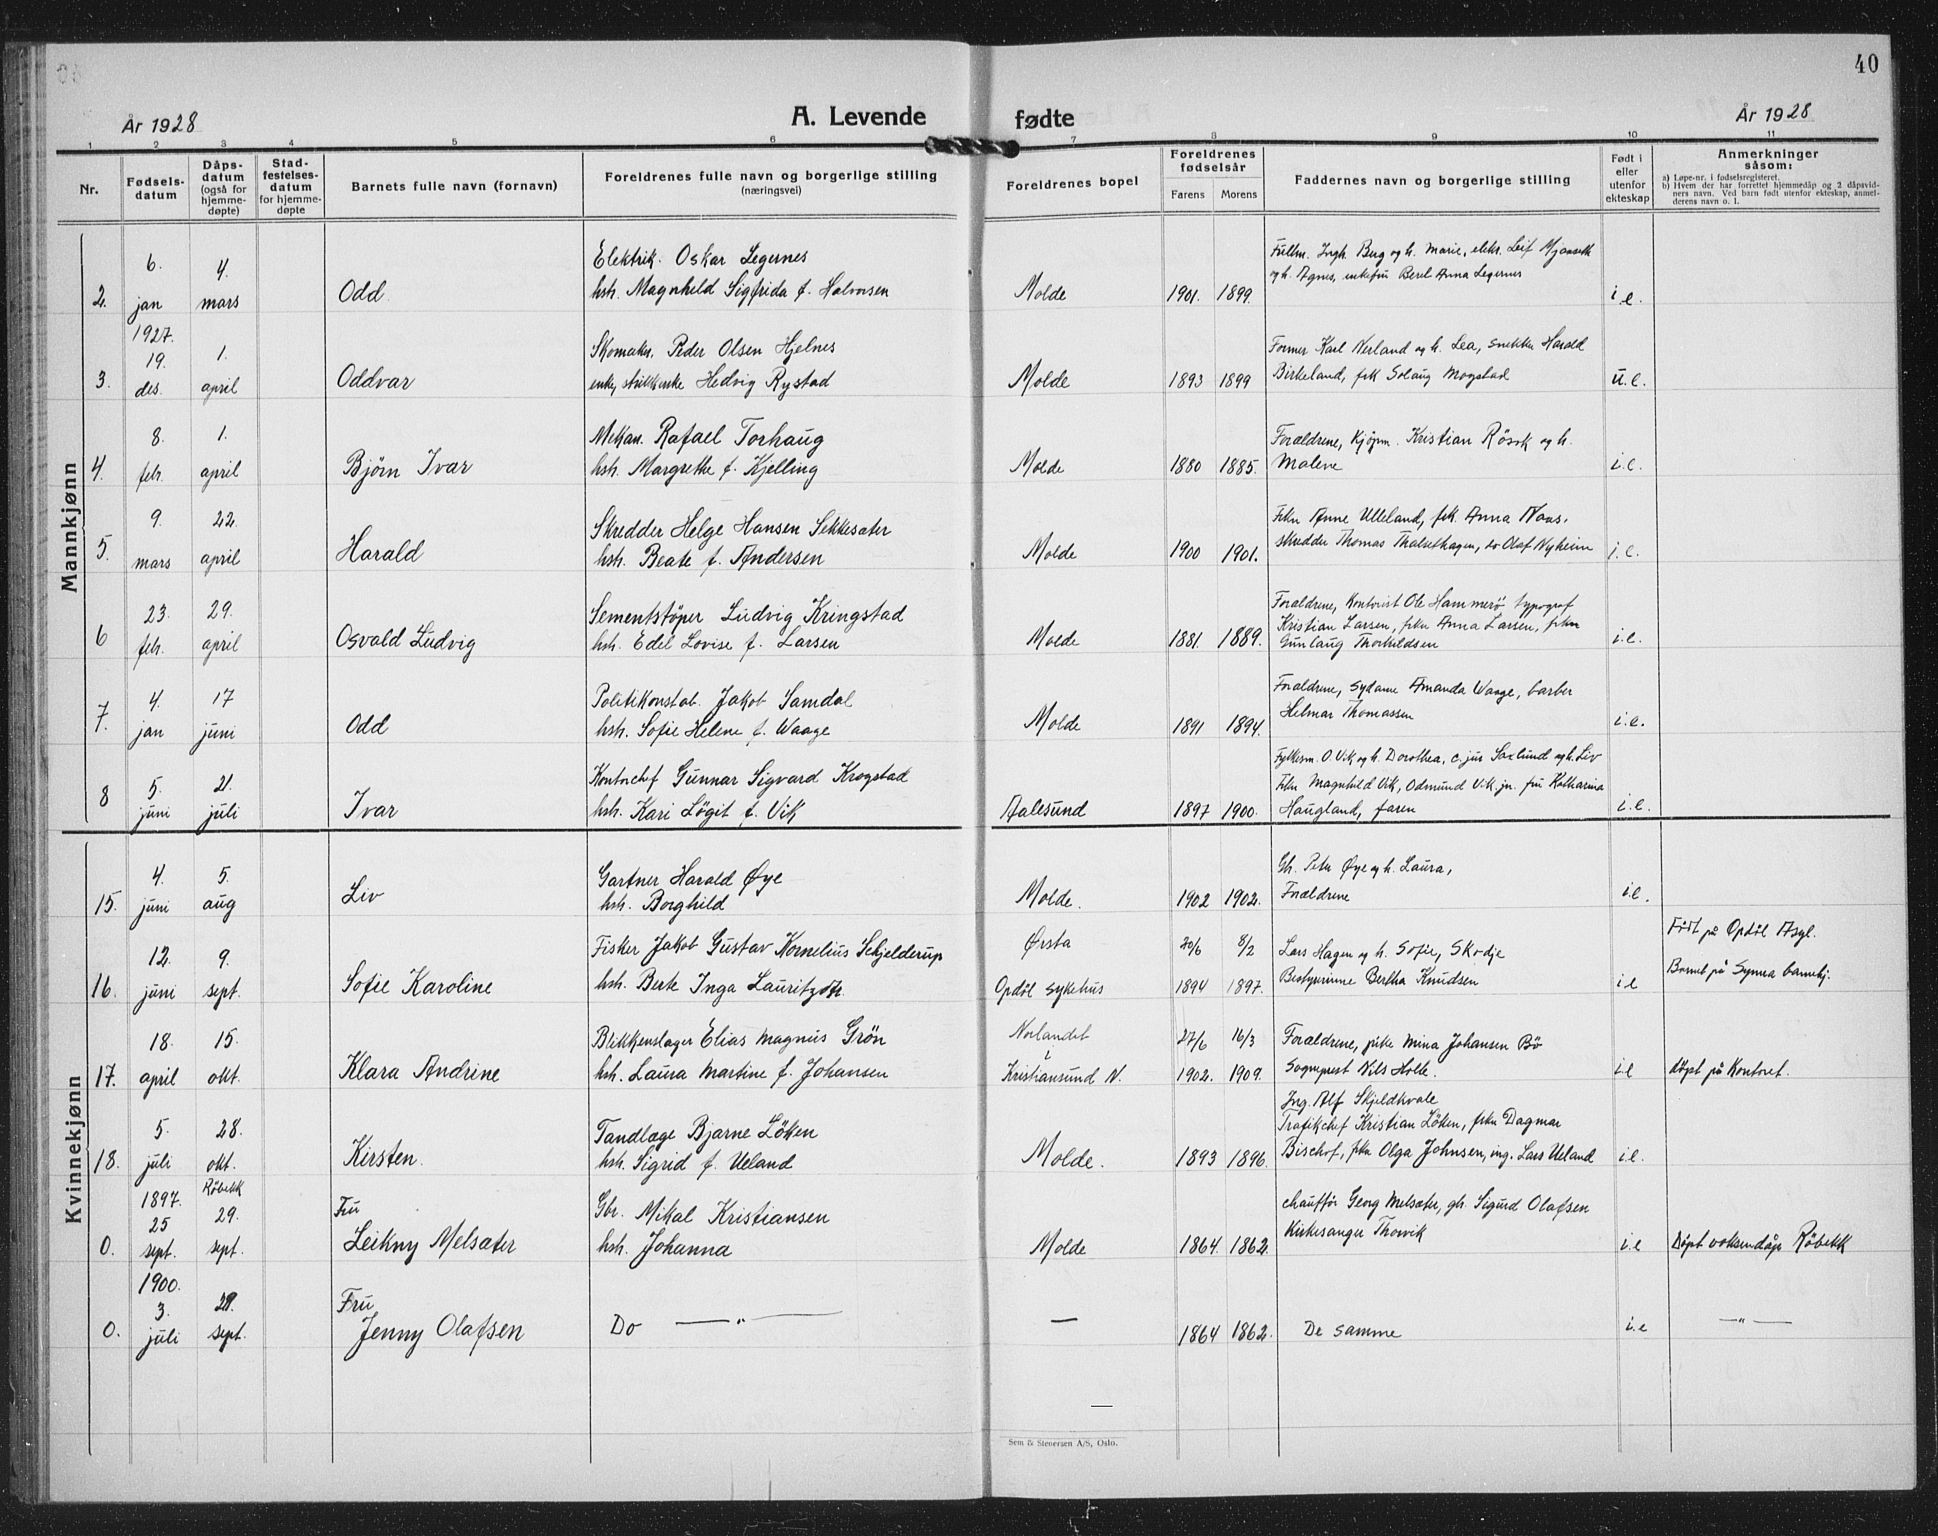 40
År 1928
A. Levende fødte
År 1928
1 2 3 4 5 6 7 8 9 10 11
Nr.
Fødsels-datum
Dåps-datum (også for hjemme-døpte)
Stad-festelses-datum for hjemme-døpte
Barnets fulle navn (fornavn)
Foreldrenes fulle navn og borgerlige stilling (næringsvei)
Foreldrenes bopel
Foreldrenes fødselsår
Farens Morens
Faddernes navn og borgerlige stilling
Født i eller utenfor ekteskap
Anmerkninger såsom:
a) Løpe-nr. i fødselsregisteret.
b) Hvem der har forrettet hjemmedåp og 2 dåpsvid-
ners navn. Ved barn født utenfor ekteskap, anmel-
derens navn o. l.
Mannkjønn
6. 4. Elektrik. Oskar Legernes Fullm. Ingb. Berg og h. Marie, elekr. Leif
2. jan mars Odd. hsh. Magnhild Sigfrida f. Halvorsen Molde 1901. 1899. og h. Agnes, enkefru Berel Anna Legernes i.e.
1927.
19. 1. Skomaker. Peder Olsen Hjelnes Former Karl Nerland og h. Lea, snekker Harald
3. des. april Oddvar enke, Hedvig Rystad Molde 1893 1899 Birkeland, frk Solaug Mogstad u.e.
8. 1. Mekan. Rafael Torhaug Forældrene, Kjøpm. Kristian Røsok og h.
4. feb. april Bjørn Ivar hsh. Margrethe f. Kjelling Molde 1880 1885. Malene i.e.
9. 22. Skredder Helge Hansen Sekkesæter Frkn Anne Ulleland, frk. Anna Naas.
5. mars april Harald hsh. Beate f. Andersen Molde 1900 1901. skredder Thomas Thalsethagen, do Olaf Nyheim i.e.
23. 29. Sementstøper Ludvig Kringstad Forældrene, Kontorist Ole Hammerø, typograf
Kristian Larsen, frkn Anna Larsen, frkn
6 feb. april Osvald Ludvig hsh. Edel Lovise f. Larsen Molde 1881. 1889. Gunlaug Thorkildsen i.e.
4. 17 Politikonstab. Jakob Samdal Forældrene, sydame Amanda Waage, barber
7. jan juni Odd hsh. Sofie Helene f. Waage Molde 1891 1894. Helmar Thomassen i.e.
5. 21. Kontorchef Gunnar Sigvard Krogstad Fylkesm. O. Vik og h. Dorothea, c. jur Saxlund og h. Liv
Frkn Magnhild Vik, Odmund Vik jn. fru Katharina
8 juni juli Ivar hsh. Kari Løgit f. Vik Aalesund 1897 1900. Haugland, faren i.e.
Kvinnekjønn
4. 5. Gartner Harald Øye Gb. Peter Øye og h. Laura,
15. juni aug Liv hsh. Borghild Molde. 1902 1902. Forældrene i.e.
12. 9. Fisker Jakob Gustav Kornelius Schjelderup Ørsta 20/6 8/2 Lars Hagen og h. Sofie, Skodje Født på Opdøl Asyl.
16. juni sept. Sofie Karoline hsh. Berte Inga Lauritzdtr. Opdøl sykehus 1894 1897. Bestyrerinne Bertha Knudsen i.e Barnet på Synna barnehj.
18. 15. Blikkenslager Elias Magnus Grøn Norlandet 27/6 16/3 Forældrene, pike Mina Johansen Bø
17. april okt. Klara Andrine hsh. Laura Martine f. Johansen Kristiansund N. 1902. 1909. Sogneprest Nils Holte. i.e døpt på Kontoret.
Ing. Alf Skjeldhvale
5. 28. Tandlæge Bjarne Løken Trafikchef Kristian Løken, frkn Dagmar
18. juli okt. Kirsten. hsh. Sigrid f. Ueland Molde. 1893 1896. Bischof, frkn Olga Johnsen, ing. Lars Ueland i.e.
1897. Røbekk
25 29. Fru Gbr. Mikal Kristiansen chauffør Georg Melsæter, gb. Sigurd Olafsen
0. sept. sept. Leikny Melsæter hsh. Johanna Molde 1864. 1862. Kirkesanger Thorvik i.e Døpt voksendåp Røbekk
1900.
3. 29. Fru
0. juli sept. Jenny Olafsen Do — " — — 1864 1862. De samme i.e — " —
—
Sem & Stenersen A/S, Oslo.